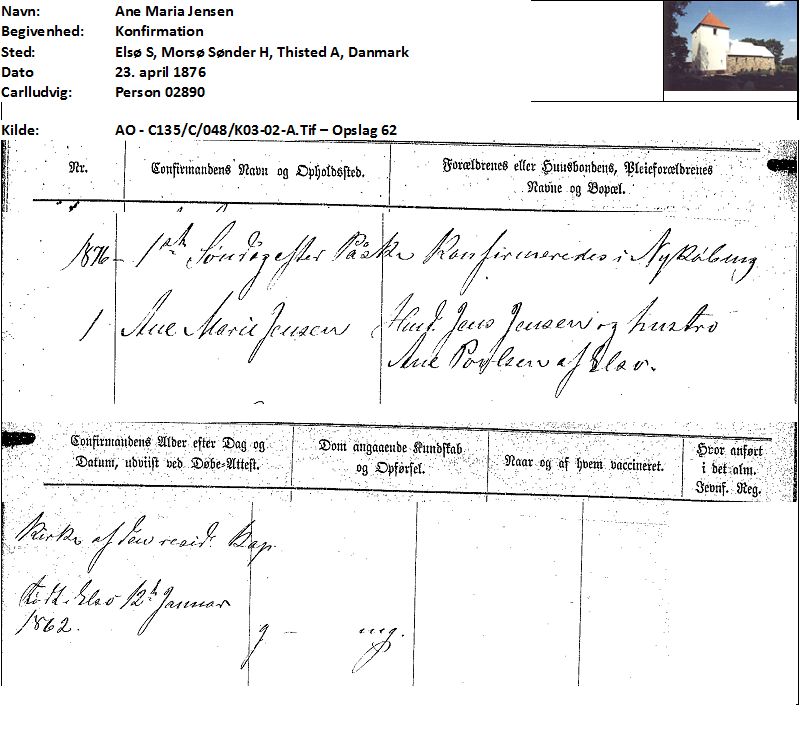 Navn: Ane Maria Jensen
Begivenhed: Konfirmation
Sted: Elsø S, Morsø Sønder H, Thisted A, Danmark
Dato 23. april 1876
Carlludvig: Person 02890
Kilde: AO - C135/C/048/K03-02-A.Tif – Opslag 62
Nr. Confirmandens Navn og Opholdssted. Forældrenes eller Huusbondens, Pleieforældrenes
Navne og Bopæl.
1876 – 1ste Søndag efter Påske Konfirmeredes i Nykøbing
1 Ane Marie Jensen Husm. Jens Jensen og hustro
Ane Poulsen af Elsø.
Confirmandens Alder efter Dag og
Datum, udviist ved Døbe-Attest.
Dom angaaende Kundskab
og Opførsel.
Naar og af hvem vaccineret.
Hvor anført
i det alm.
Jevnf. Reg.
Kirke af den resid. Kap.
Født i Elsø 12te Januar
1862. g – mg.